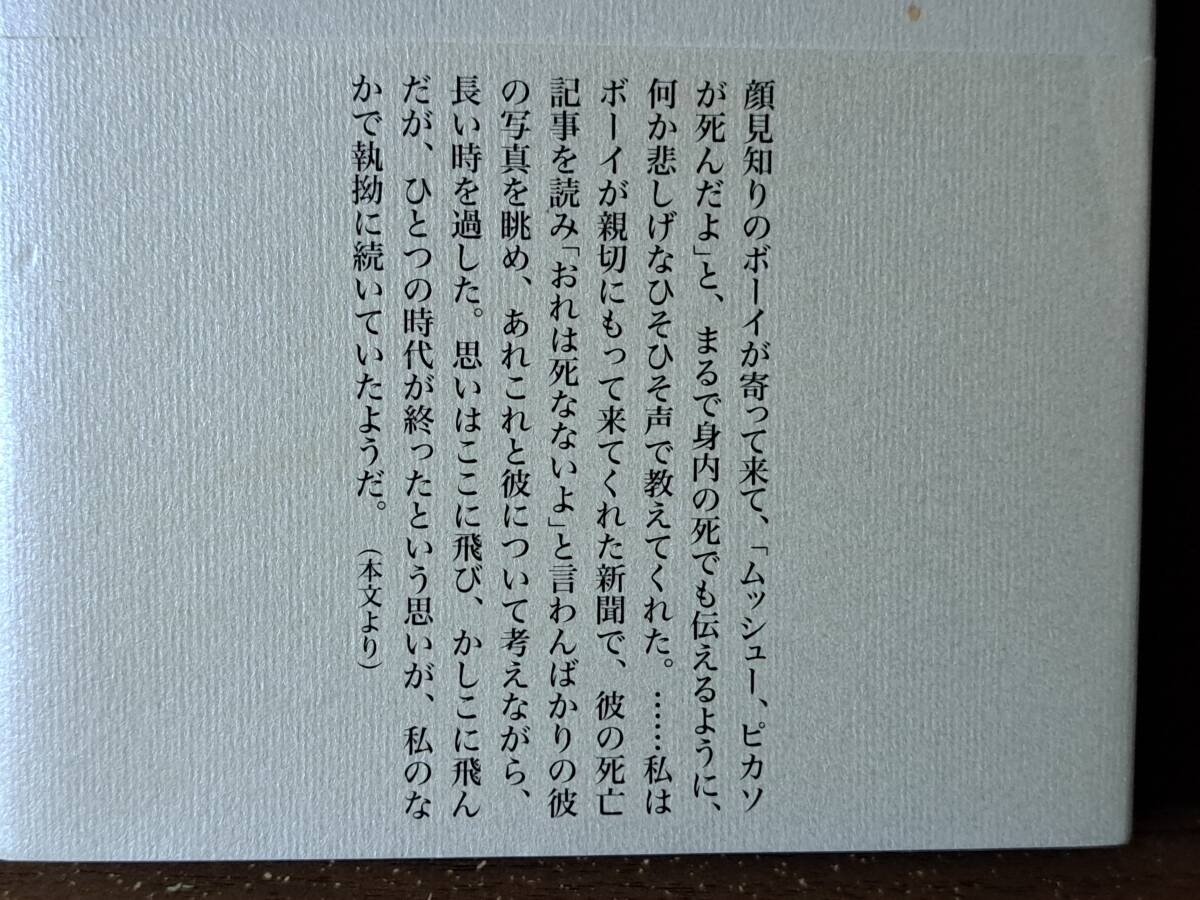 顔見知りのボーイが寄って来て、「ムッシュー、ピカソ
が死んだよ」と、まるで身内の死でも伝えるように、
何か悲しげなひそひそ声で教えてくれた。……私は
ボーイが親切にもって来てくれた新聞で、彼の死亡
記事を読み「おれは死なないよ」と言わんばかりの彼
の写真を眺め、あれこれと彼について考えながら、
長い時を過した。思いはここに飛び、かしこに飛ん
だが、ひとつの時代が終ったという思いが、私のな
かで執拗に続いていたようだ。（本文より）